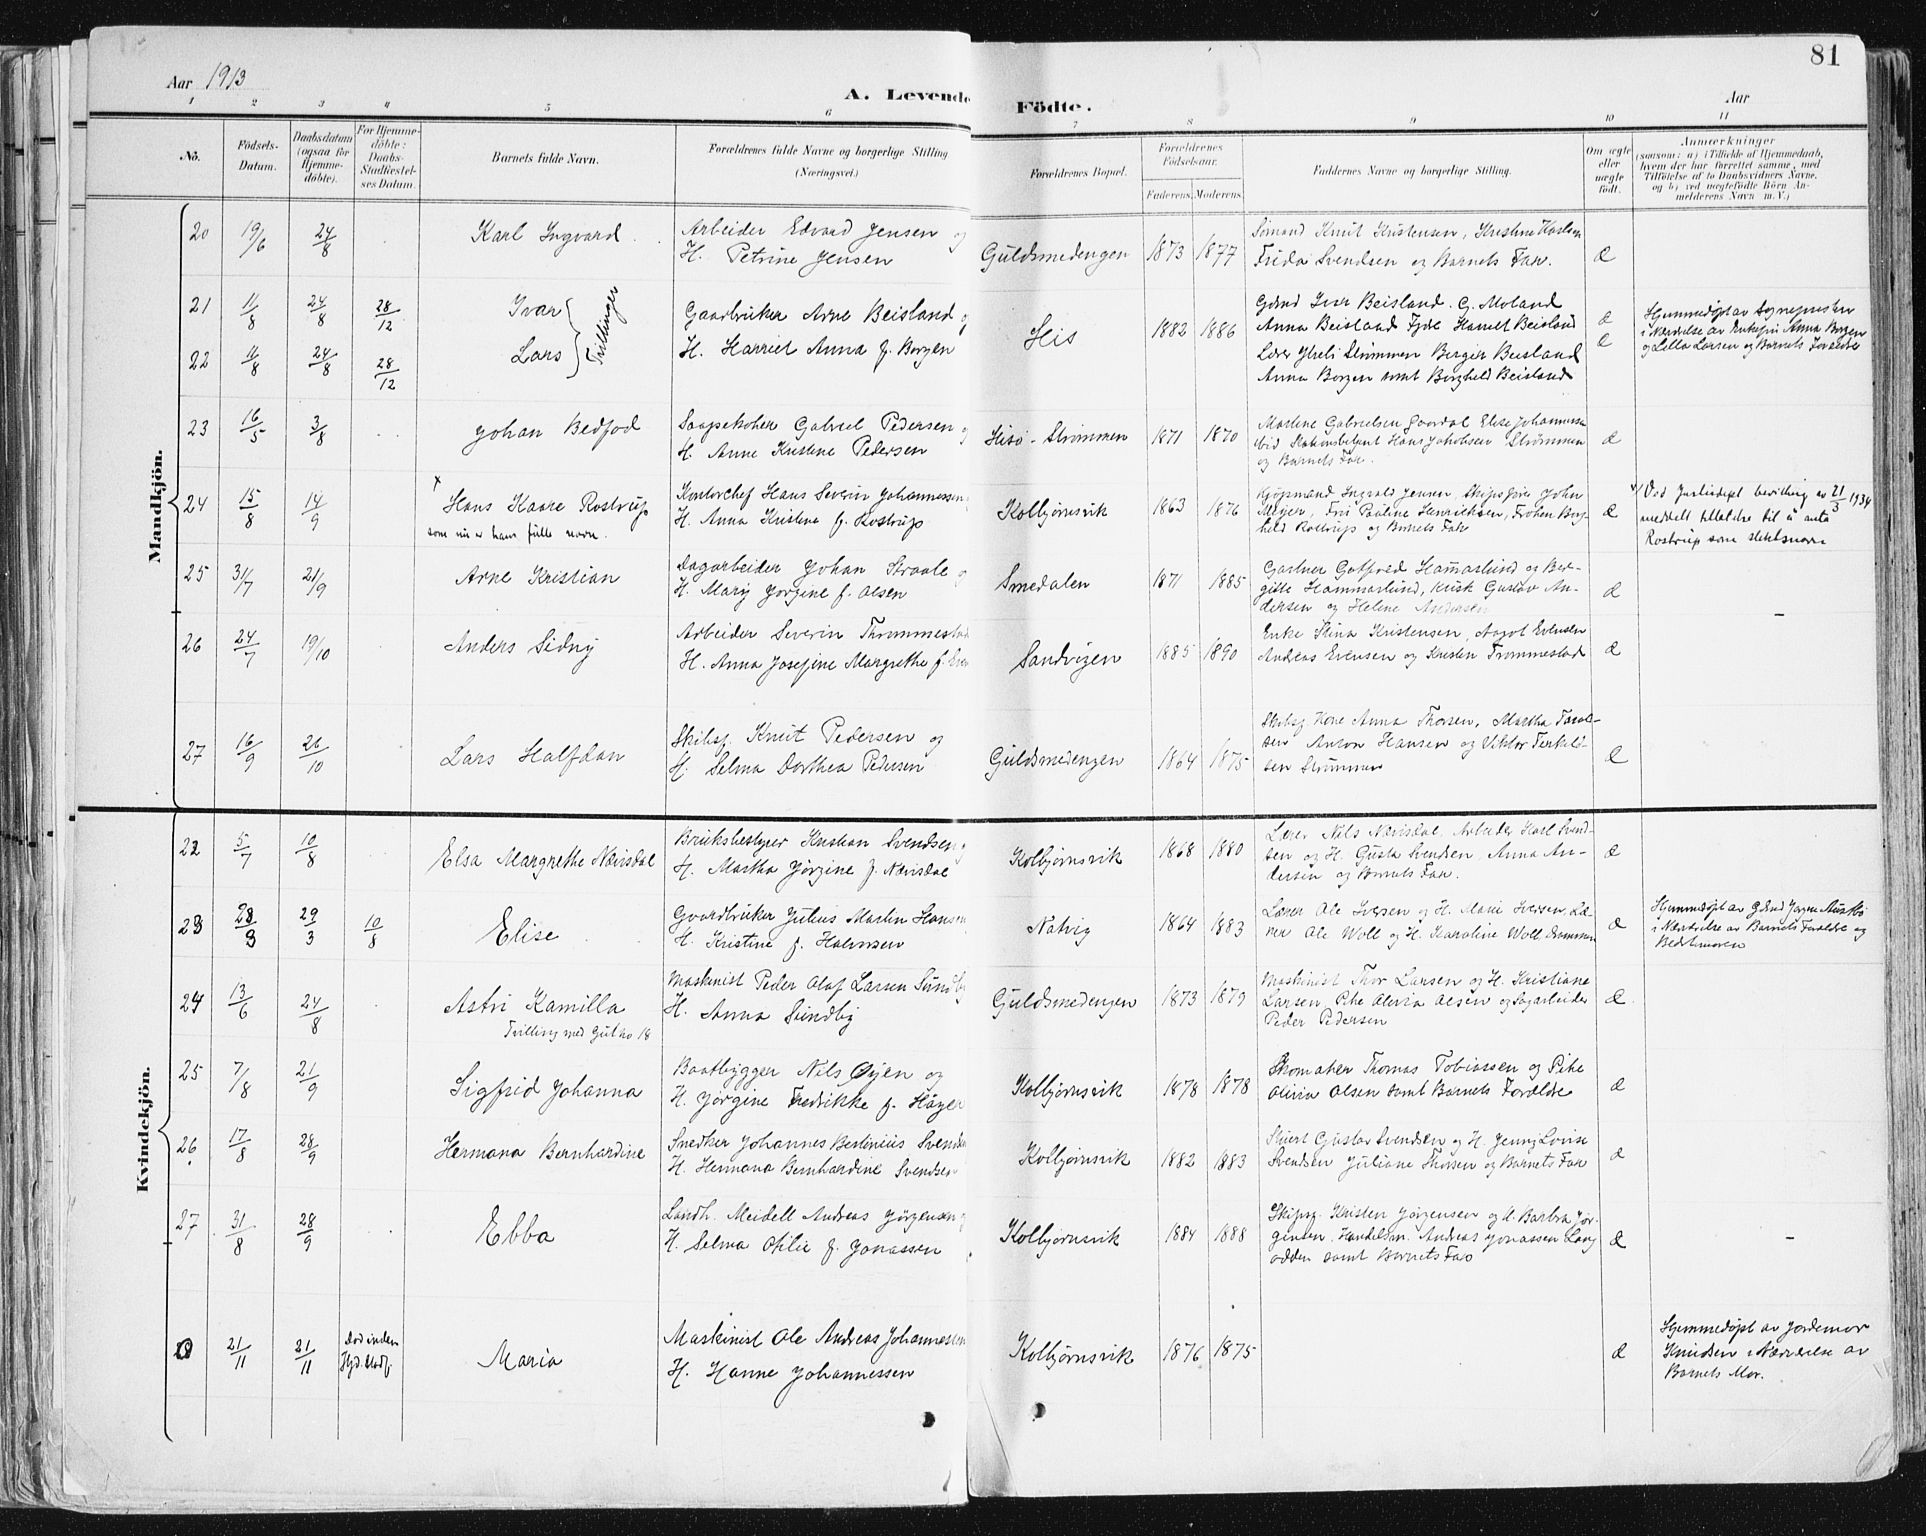 81
Aar 1913
A. Levende Födte.
Aar
1 2 3 4 5 6 7 8 9 10 11
No.
Födsels-
Datum.
Daabsdatum
(ogsaa for
Hjemme-
döbte).
For Hjemme-
döbte:
Daabs-
Stadfæstel-
ses Datum.
Barnets fulde Navn.
Forældrenes fulde Navne og borgerlige Stilling
(Næringsvei.)
Forældrenes Bopæl.
Forældrenes
Födselsaar.
Faderens. Moderens.
Faddernes Navne og borgerlige Stilling.
Om ægte
eller
uægte
födt.
Anmærkninger
(saasom: a) i Tilfælde af Hjemmedaab,
hvem der har forrettet samme, med
Tilföielse af to Daabsvidners Navne,
og b) ved uægtefödte Börn An-
melderens Navn m. V.)
Mandkjön.
20 19/6 24/8 Karl Ingvard
Arbeider Edvard Jensen og
H. Petrine Jensen
Guldsmedengen 1873 1877
Sömand Knut Kristensen, Kristine Karlsen
Frida Svendsen og Barnets Far.
Æ
21 11/8 24/8 28/12 Ivar
22 11/8 24/8 28/12 Lars
Tvillinger
Gaardbruker Arne Beisland og
H. Harriet Anna f. Borgen
His 1882 1886
Gdmd Iver Beisland. G. Moland
Anna Beisland Fjdl Hamelt Beisland
Lærer Strømmen Birger Beisland
Anna Borgen samt Borghild Beisland
Æ
Æ
Hjemmedøpt av Sognepresten
i Nærværelse av Enkefru Anna Borgen
og Lella Larsen og Barnets Forældre
23 16/5 3/8 Johan Bedfod
Saapekoker Gabriel Pedersen og
H. Anne Kristine Pedersen
Hisö-Strømmen 1871 1870
Martine Gabrielsen Gaardal Elise Johannessen
ibid Hans Jakobsen Strømmen
og Barnets Far.
Æ
24 15/8 14/9 x Hans Kaare Rostrup
som nu er hans fulle navn.
Kontorchef Hans Severin Johannessen
H. Anna Kristine f. Rostrup
Kolbjørnsvik 1863 1876
Kjøpmand Ingvald Jensen, Skipsfører John
Meyer, Fru Pauline Henrichsen, Frøken Borg-
hild Rostrup og Barnets Far
Æ
x/ Ved Justisdept bevilling av 21/3 1934
meddelt tillatelse til å anta
Rostrup som slektsnavn
25 31/7 21/9 Arne Kristian
Dagarbeider Johan Straale og
H. Mary Jørgine f. Olsen
Smedalen 1871 1885
Gartner Gotfred Hammarlund og Ber-
gitte Hammarlund, Kusk Gustav An-
dersen og Helene Andersen
Æ
–
26 24/7 19/10 Anders Sidny
Arbeider Severin Thrommestad
H. Anna Josefine Margrethe f. Even
Sandvigen 1885 1890
Enke Stina Kristensen, Aagot Evensen
Andreas Evensen og Kristen Trommestad
Æ
27 16/9 26/10 Lars Halfdan
Skibsf. Knut Pedersen og
H. Selma Dorthea Pedersen
Guldsmedengen 1864 1875
Skibsf. Kone Anna Thorsen, Martha Taral-
sen Anton Hansen og Viktor Terkeld-
sen Strømmen
Æ
Kvindekjön.
22 5/7 10/8 Elsa Margrethe Nævisdal
Bruksbestyrer Kristian Svendsen og
H. Martha Jörgine f. Nævisdal
Kolbjørnsvik 1868 1880
Lærer Nils Nævisdal. Arbeider Karl Svend-
sen og H. Gusta Svendsen, Anna An-
dersen og Barnets Far.
Æ
23 28/3 29/3 10/8 Elise
Gaardbruker Julius Martin Hansen
H. Kristine f. Halvorsen
Natvig 1864 1883
Lærer Ole Iversen og H. Marie Iversen, Læ-
rer Ole Woll og H. Karoline Woll
Æ
Hjemmedøpt av Gdmd Jørgen
i Nærværelse av Barnets Forældre og
Bedstemoren
24 13/6 24/8 Astri Kamilla
Tvilling med Gut no 18
Maskinist Peder Olaf Larsen Sundby
H. Anna Sundby
Guldsmedengen 1873 1879
Maskinist Thor Larsen og H. Kristiane
Larsen, Pike Olivia Olsen og Sagarbeider
Peder Pedersen
Æ
25 7/8 21/9 Sigfrid Johanna
Baatbygger Nils Øyen og
H. Jørgine Fredrikke f. Höyer
Kolbjørnsvik 1878 1878
Skomaker Thomas Tobiassen og Pike
Olivia Olsen samt Barnets Forældre
Æ
26 17/8 28/9 Hermana Bernhardine
Snedker Johannes Bertinius Svendsen
H. Hermana Bernhardine Svendsen
Kolbjørnsvik 1882 1883
Stuert Gustav Svendsen og H. Jenny Lovise
Svendsen Juliane Thorsen og Barnets Far
Æ
27 31/8 28/9 Ebba
Landh. Meidell Andreas Jørgensen og
H. Selma Otilie f. Jonassen
Kolbjørnsvik 1884 1888
Skipsf. Kristen Jørgensen og H. Barbra Jør-
gensen, Handelsm. Andreas Jonassen Lang
odden samt Barnets Far
Æ
–
0 21/11 21/11 Død inden
Maria
Maskinist Ole Andreas Johannessen
H. Hanne Johannessen
Kolbjørnsvik 1876 1875
Æ
Hjemmedøpt av Jordemor
Knudsen i Nærværelse av
Barnets Mor.